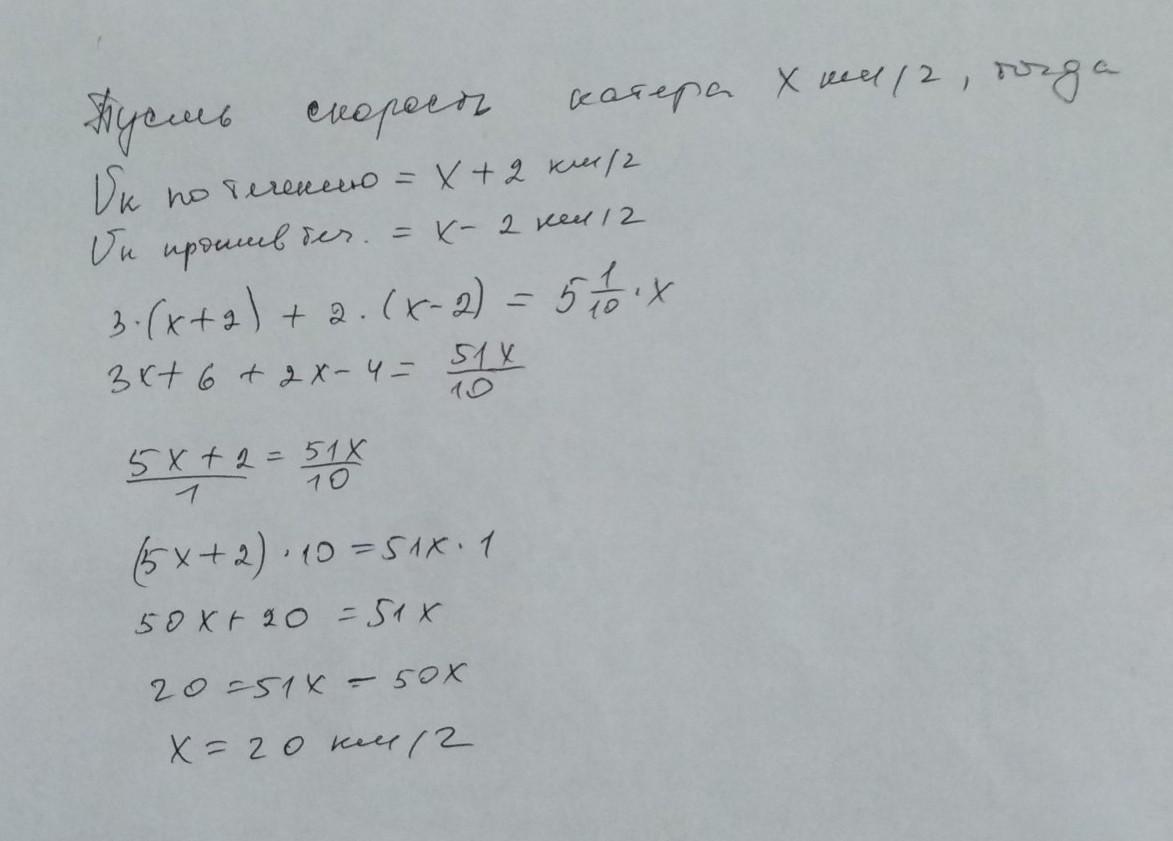 Пусть скорость катера x км/г, тогда
Vк по течению = x + 2 км/г
Vк против теч. = x - 2 км/г
3·(x+2) + 2·(x-2) = 5 1/10 · x
3x + 6 + 2x - 4 = 51x/10
(5x + 2)/1 = 51x/10
(5x+2)·10 = 51x·1
50x + 20 = 51x
20 = 51x - 50x
x = 20 км/г